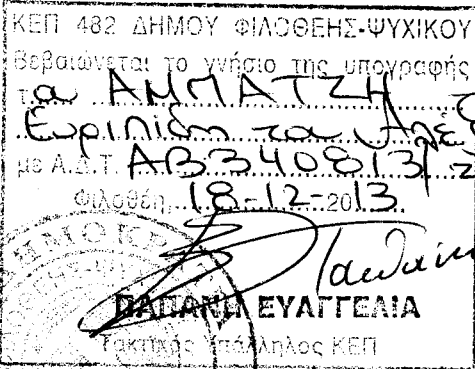 ΚΕΠ 482 ΔΗΜΟΥ ΦΙΛΟΘΕΗΣ-ΨΥΧΙΚΟΥ
Βεβαιώνεται το γνήσιο της υπογραφής
ΑΜΠΑΤΖΗ
Ευριπίδη του
με Α.Δ.Τ. ΑΒ340813
Φιλοθέη, 18-12-2013
ΠΑΠΑΝΗ ΕΥΑΓΓΕΛΙΑ
Τακτικός Υπάλληλος ΚΕΠ